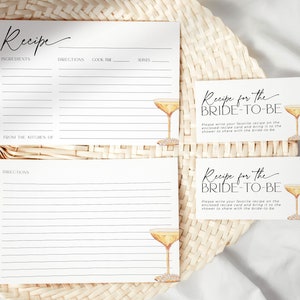 Recipe
INGREDIENTS DIRECTIONS COOK FOR SERVES
FROM THE KITCHEN OF
DIRECTIONS
Recipe for the
BRIDE-TO-BE
Please write your favorite recipe on the
enclosed recipe card and bring it to the
shower to share with the bride-to-be.
Recipe for the
BRIDE-TO-BE
Please write your favorite recipe on the
enclosed recipe card and bring it to the
shower to share with the bride-to-be.